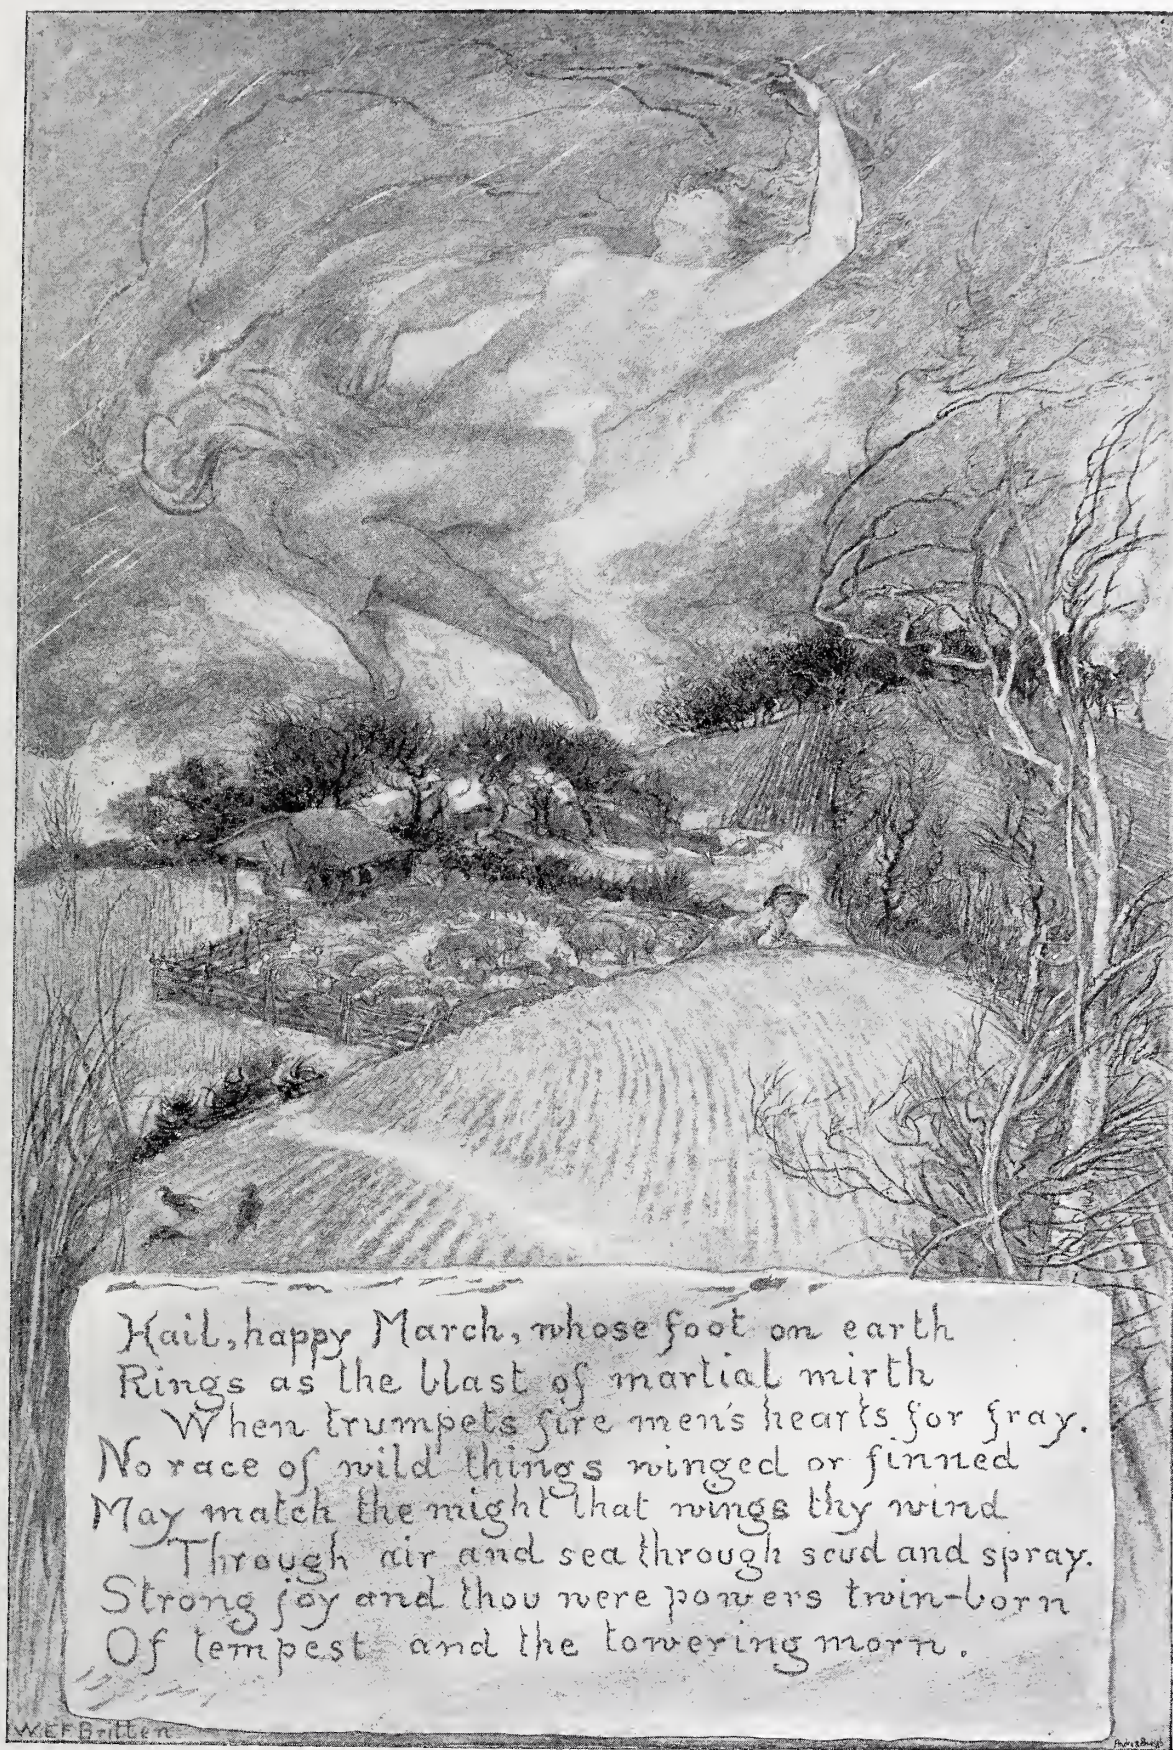 Hail, happy March, whose foot on earth
Rings as the blast of martial mirth
When trumpets fire men's hearts for fray.
No race of wild things winged or finned
May match the might that wings thy wind
Through air and sea through scud and spray.
Strong joy and thou were powers twin-born
Of tempest and the towering morn.
W.E.F. Britten